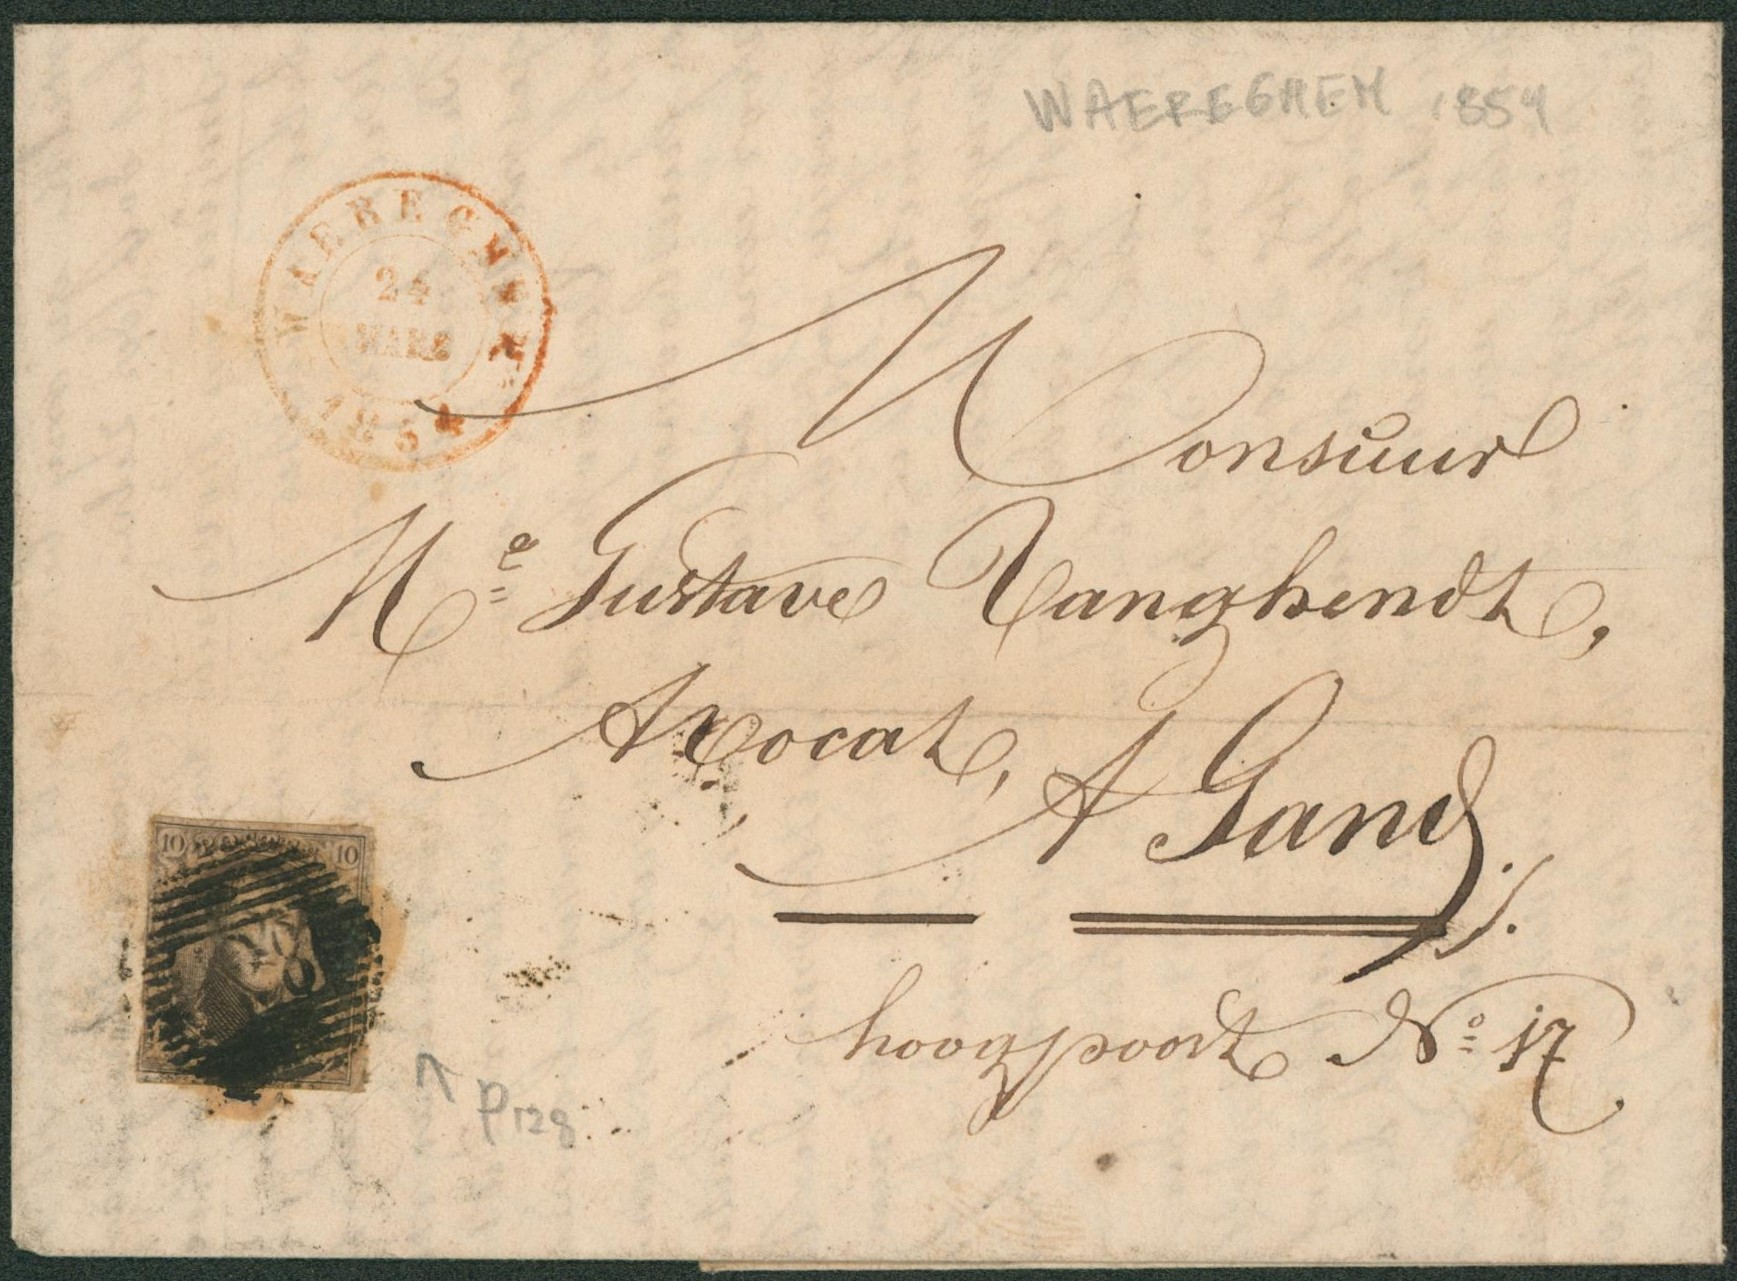 WAEREGHEM 1854
WAEREGHEM
24
MARS
1854
Monsieur
Mr Gustave Vanghendt,
Avocat, A Gand
hoogpoort No 17
10 10
P128